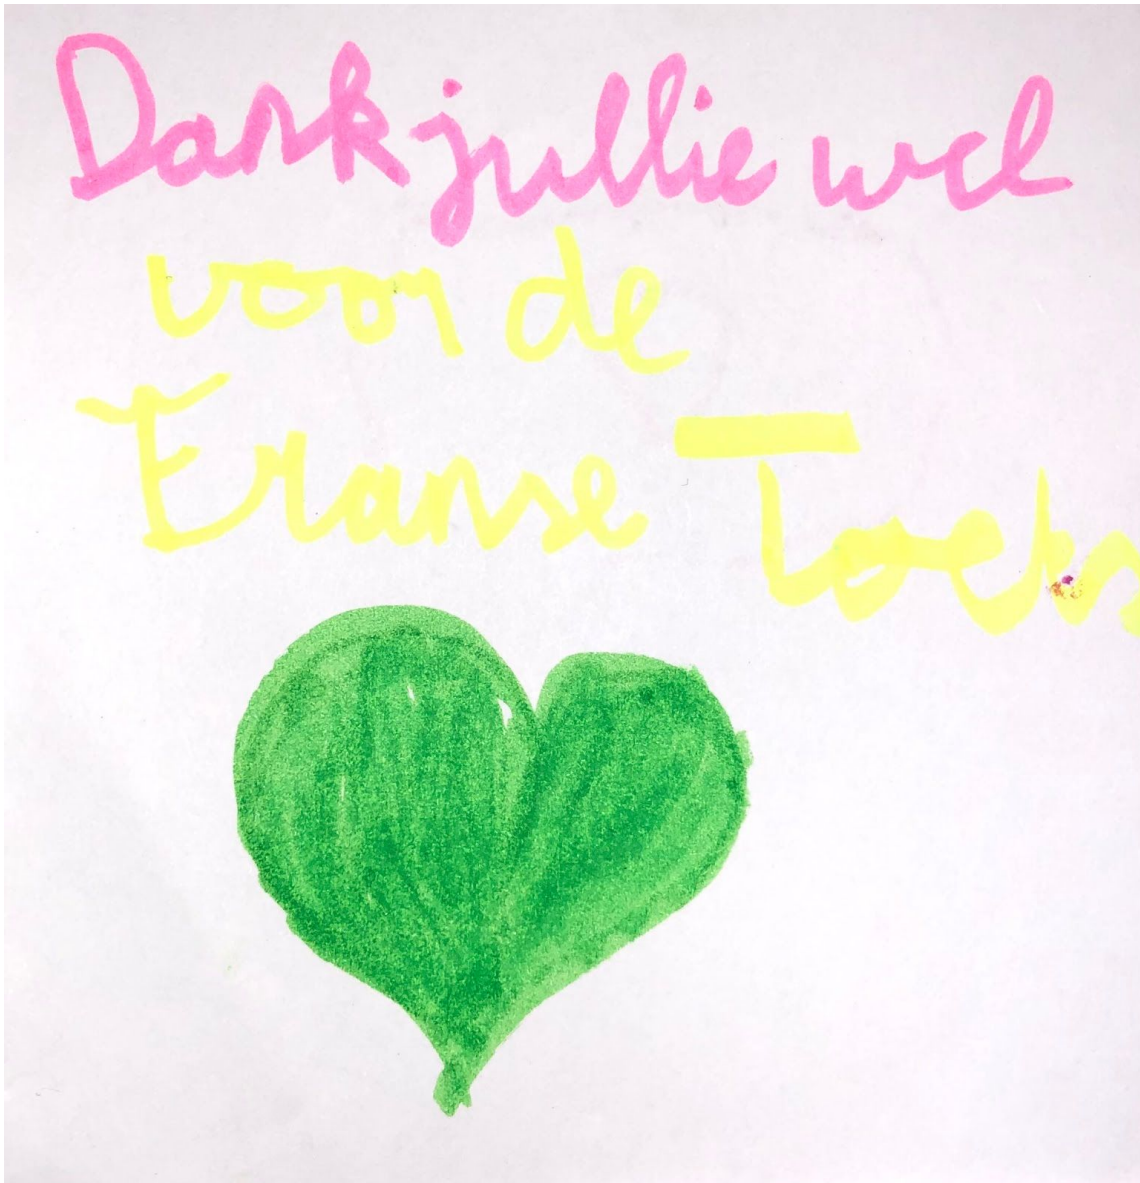 Dank jullie wel
voor de
Franse Toets